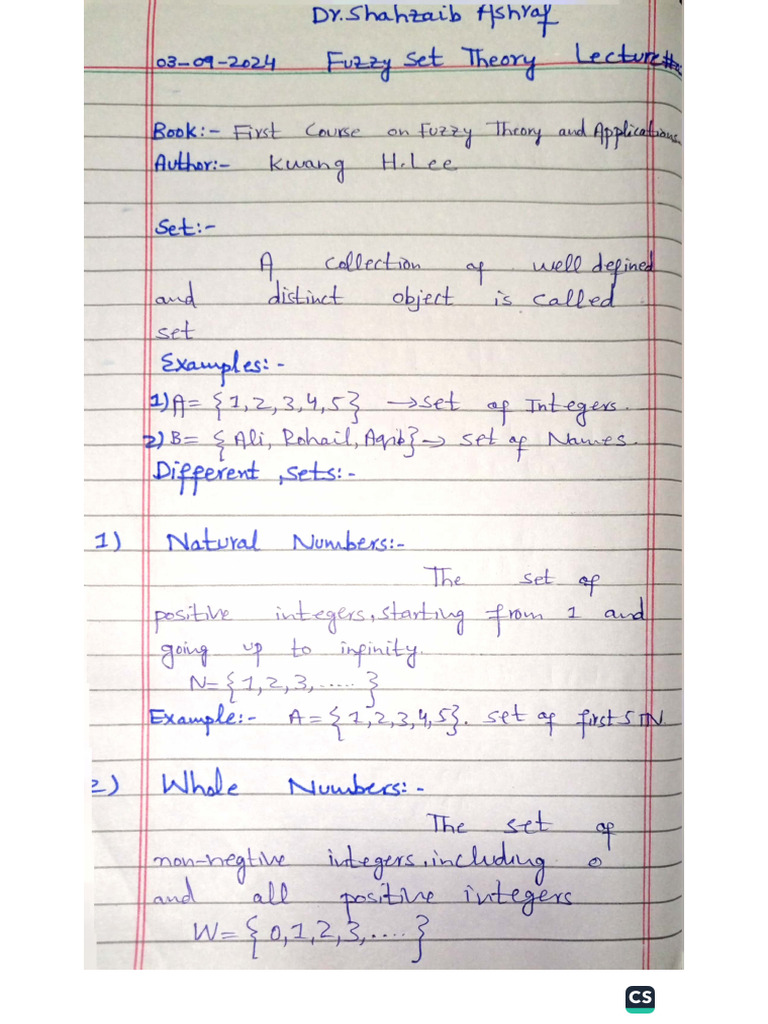 Dr.Shahzaib Ashraf
03-09-2024 Fuzzy Set Theory Lecture#
Book:- First Course on Fuzzy Theory and Applications.
Author:- Kwang H.Lee
Set:-
A collection of well defined
and distinct object is called
set
Examples:-
1) A= {1,2,3,4,5} →set of Integers.
2) B= {Ali, Rohail, Aqib}→ set of Names.
Different sets:-
1) Natural Numbers:-
The set of
positive integers, starting from 1 and
going up to infinity.
N={1,2,3,.....}
Example:- A={1,2,3,4,5}. set of first 5 IN
2) Whole Numbers:-
The set of
non-negtive integers, including 0
and all positive integers
W={0,1,2,3,....}
CS